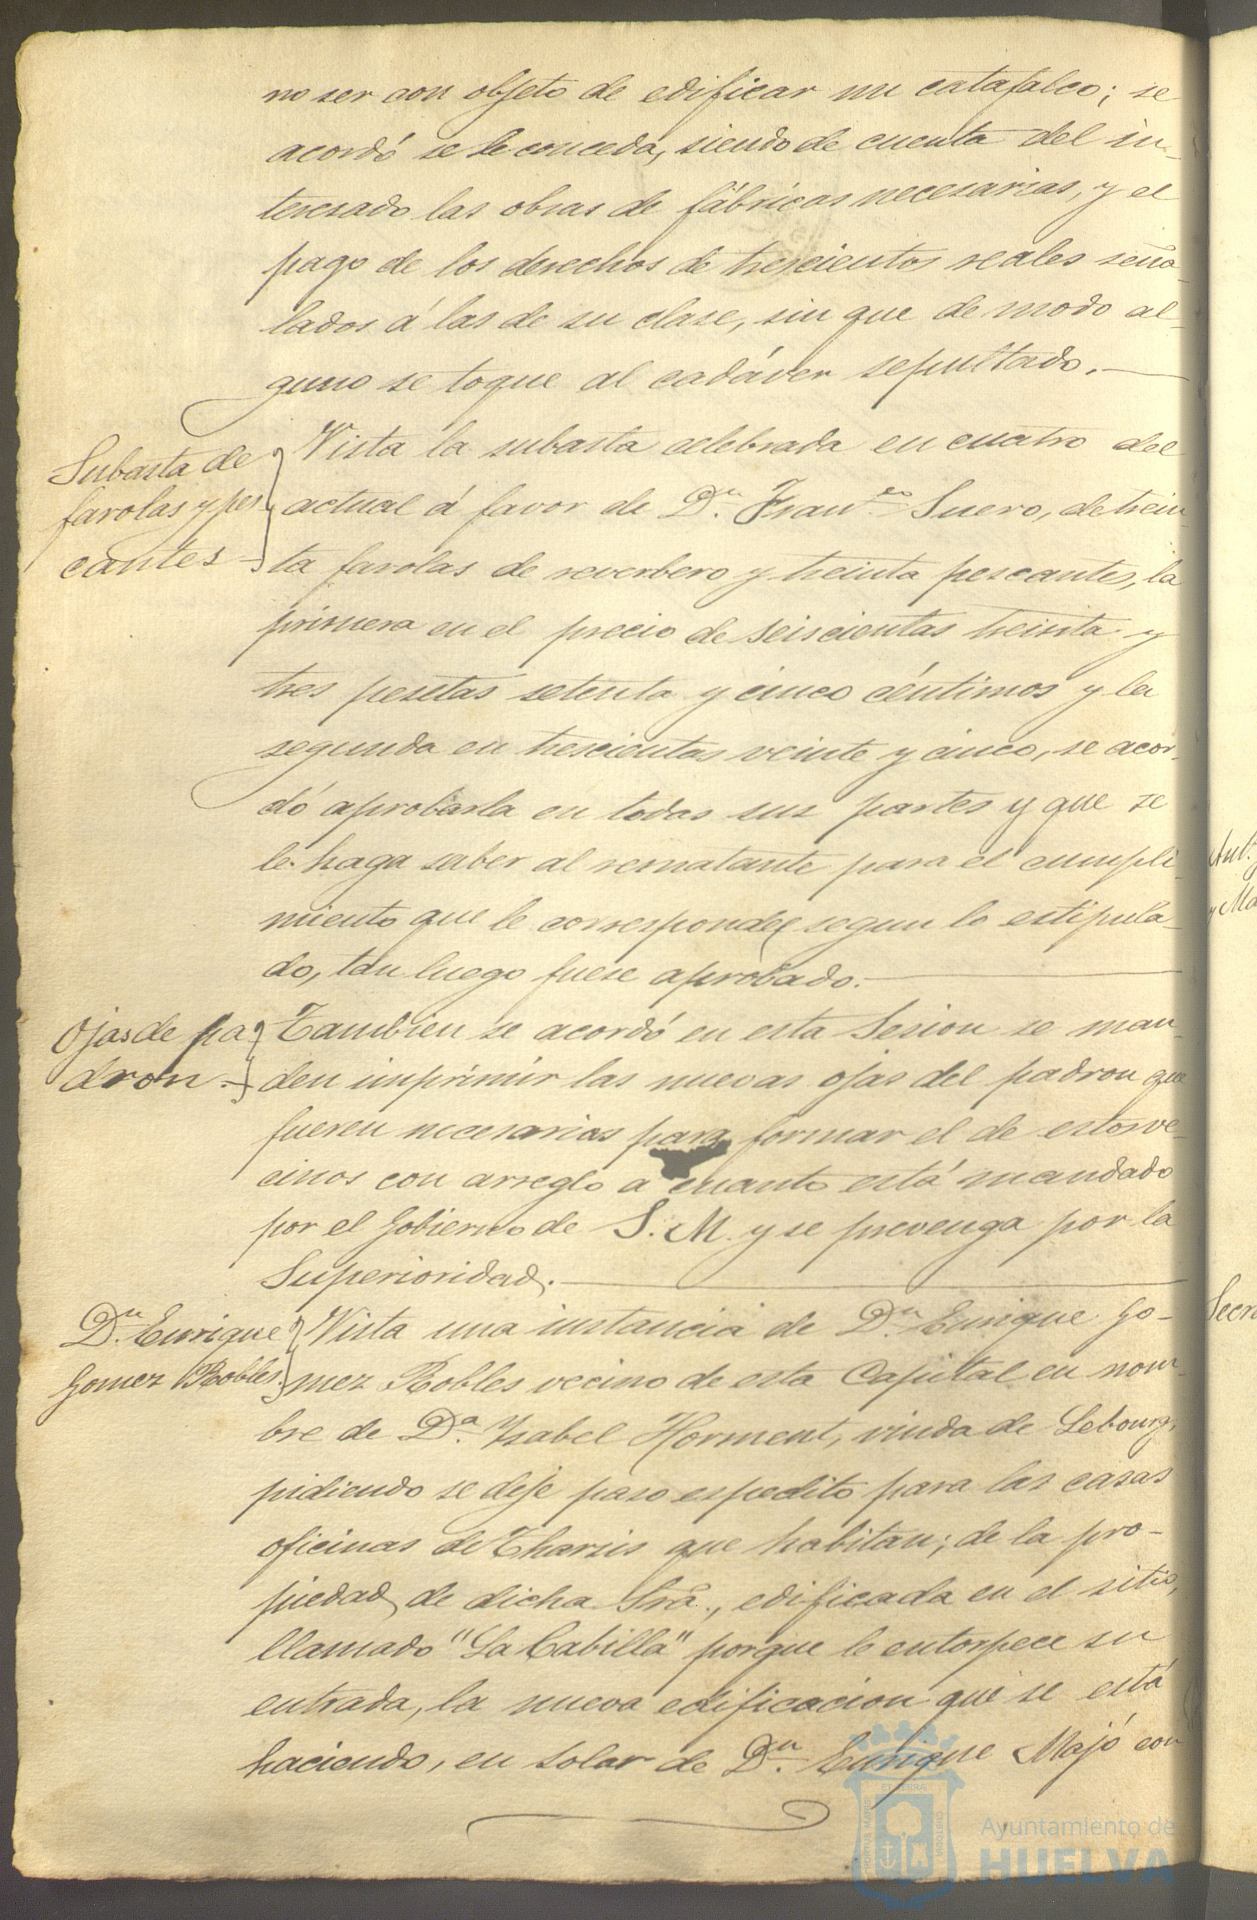 no ser con objeto de edificar un catafalco; se
acordó se le conceda, siendo de cuenta del in-
teresado las obras de fábricas necesarias, y el
pago de los derechos de trescientos reales seña
lados á las de su clase, sin que de modo al-
guno se toque al cadáver sepultado.
Subasta de
farolas y pes
cantes
Vista la subasta celebrada en cuatro del
actual á favor de Dn. Franco. Suero, de trein
ta farolas de reverbero y treinta pescantes, la
primera en el precio de seiscientas treinta y
tres pesetas setenta y cinco céntimos y la
segunda en trescientas veinte y cinco, se acor-
dó aprobarla en todas sus partes y que se
le haga saber al rematante para el cumpli-
miento que le corresponde segun lo estipula-
do, tan luego fuese aprobado.
Ojas de pa
dron.
Tambien se acordó en esta Sesion se man-
den imprimir las nuevas ojas del padron que
fueren necesarias para formar el de estos ve-
cinos con arreglo a cuanto está mandado
por el Gobierno de S. M. y se prevenga por la
Superioridad.
Dn. Enrique
Gomez Robles.
Vista una instancia de Dn. Enrique Go-
mez Robles vecino de esta Capital en nom-
bre de Da. Ysabel Horment, viuda de Lebourg,
pidiendo se deje paso espedito para las casas
oficinas de Tharsis que habitan; de la pro-
piedad de dicha Sra., edificada en el sitio,
llamado "La Cabilla" porque le entorpece su
entrada, la nueva edificacion que se está
haciendo, en solar de Dn. Enrique Majó con
Ant.
y Ma
Secre
Ayuntamiento de
HUELVA